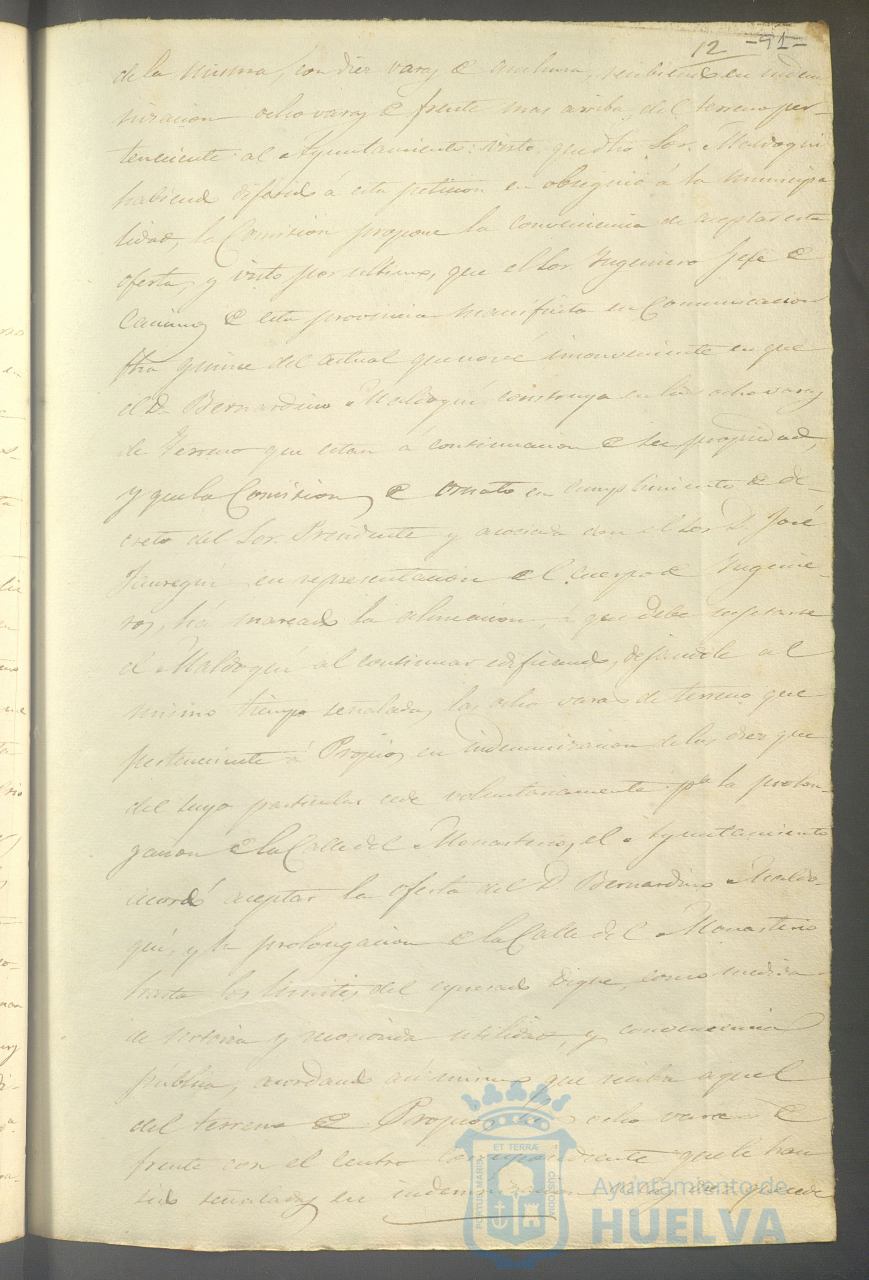 12 -91-
de la misma, con diez varas de anchura, recibiendo en indem-
nizacion ocho varas de frente mas arriba, del terreno per-
teneciente al Ayuntamiento: visto, que dho Sor. Maldoqui
habiendo diferido á esta peticion en obsequio á la municipa
lidad, la Comision propone la conveniencia de aceptar esta
oferta, y visto por ultimo, que el Sor. Yngeniero Jefe de
Caminos de esta provincia manifiesta en Comunicacion
fha quince del actual que no vé inconveniente en que
el D. Bernardino Maldoqui construya en las ocho varas
de terreno que estan á continuacion de su propiedad,
y que la Comision de ornato en cumplimiento de de-
creto del Sor. Presidente y asociada con el Sor. D. José
Jauregui en representacion del cuerpo de Yngenie-
ros, há marcado la alineacion, á que debe sujetarse
el Maldoqui al continuar edificando, dejandole al
mismo tiempo señaladas las ocho varas de terreno que
perteneciente á Propios en indemnizacion de las diez que
del suyo particular cede voluntariamente pa. la prolon-
gacion de la Calle del Monasterio, el Ayuntamiento
acordó aceptar la oferta del D. Bernardino Maldo-
qui, y la prolongacion de la Calle del Monasterio
hasta los limites del espresado Dique, como medida
de notoria y reconocida utilidad, y conveniencia
pública, acordando asi mismo que reciba aquel
del terreno de Propios las ocho varas de
frente con el centro correspondiente que le han
sido señaladas en indemnizacion
PORTUS MARIS ET TERRÆ CUSTODIA
Ayuntamiento de
HUELVA